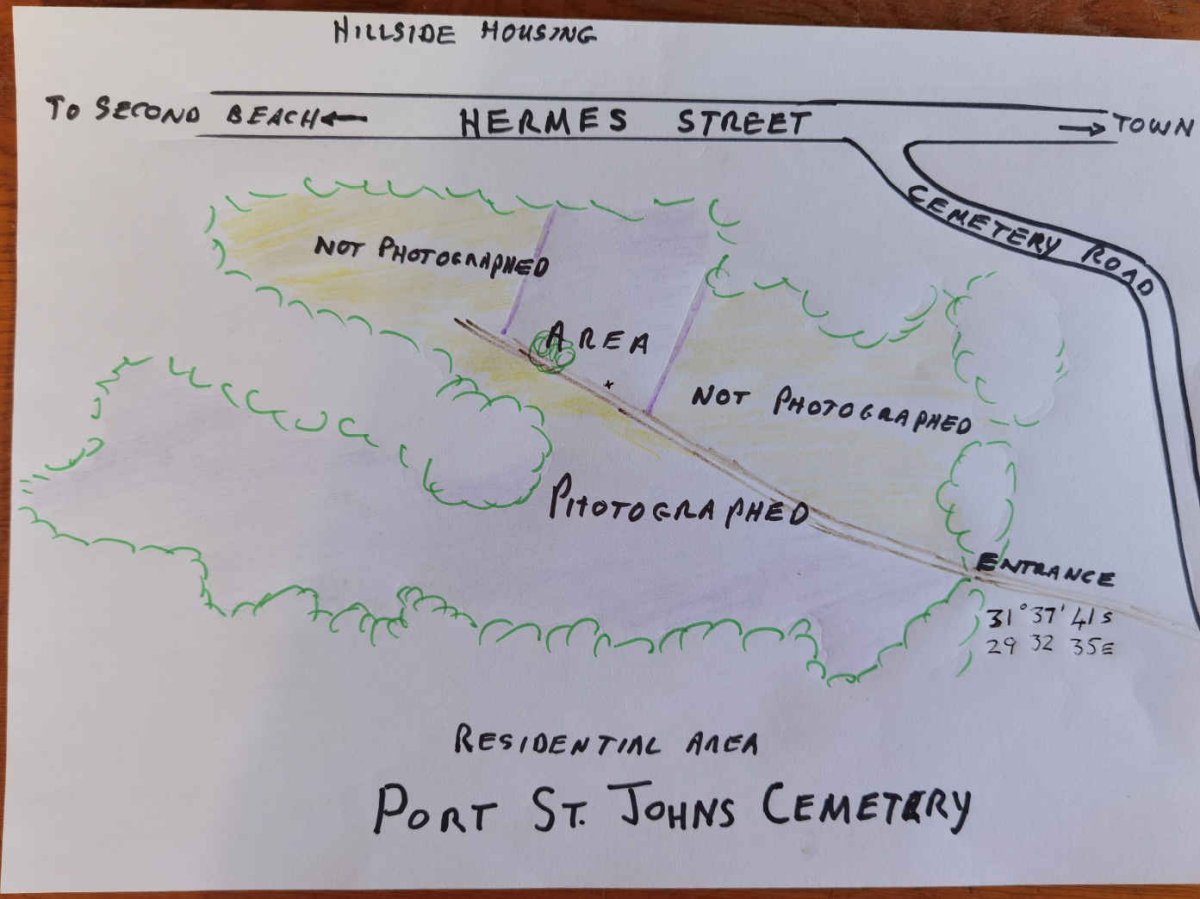 HILLSIDE HOUSING
TO SECOND BEACH ←
HERMES STREET
→ TOWN
CEMETERY ROAD
NOT PHOTOGRAPHED
AREA
NOT PHOTOGRAPHED
PHOTOGRAPHED
ENTRANCE
31°37'41S
29 32 35E
RESIDENTIAL AREA
PORT ST. JOHNS CEMETERY